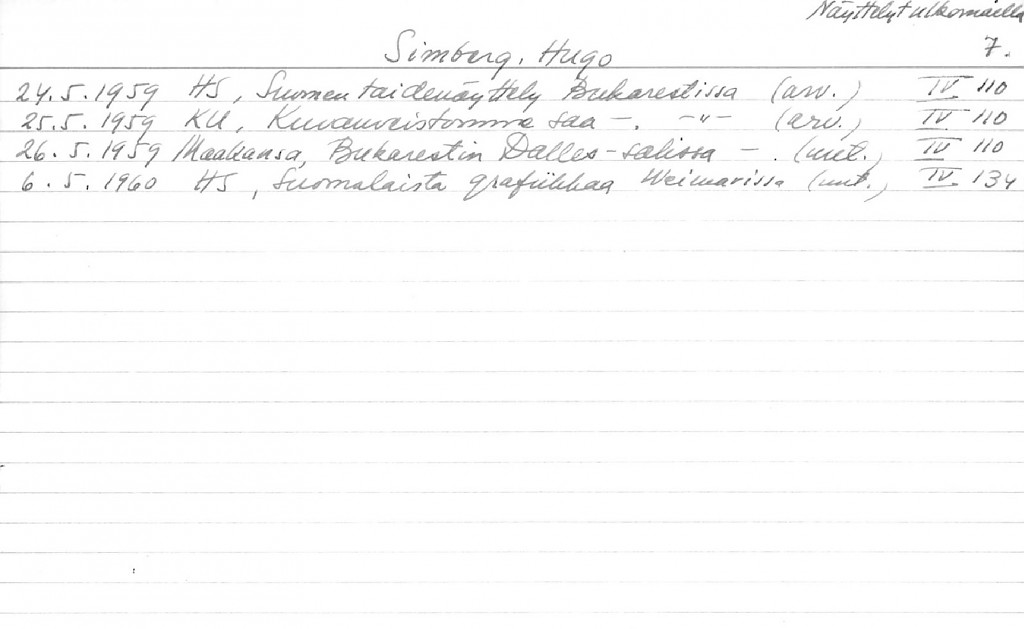 Näyttelyt ulkomailla
Simberg, Hugo 7.
24.5.1959 HS, Suomen taidenäyttely Bukarestissa (arv.) IV 110
25.5.1959 KU, Kuvanveistomme saa —. —"— (arv.) IV 110
26.5.1959 Maakansa, Bukarestin Dalles-salissa —. (uut.) IV 110
6.5.1960 HS, Suomalaista grafiikkaa Weimarissa (uut.) IV 134